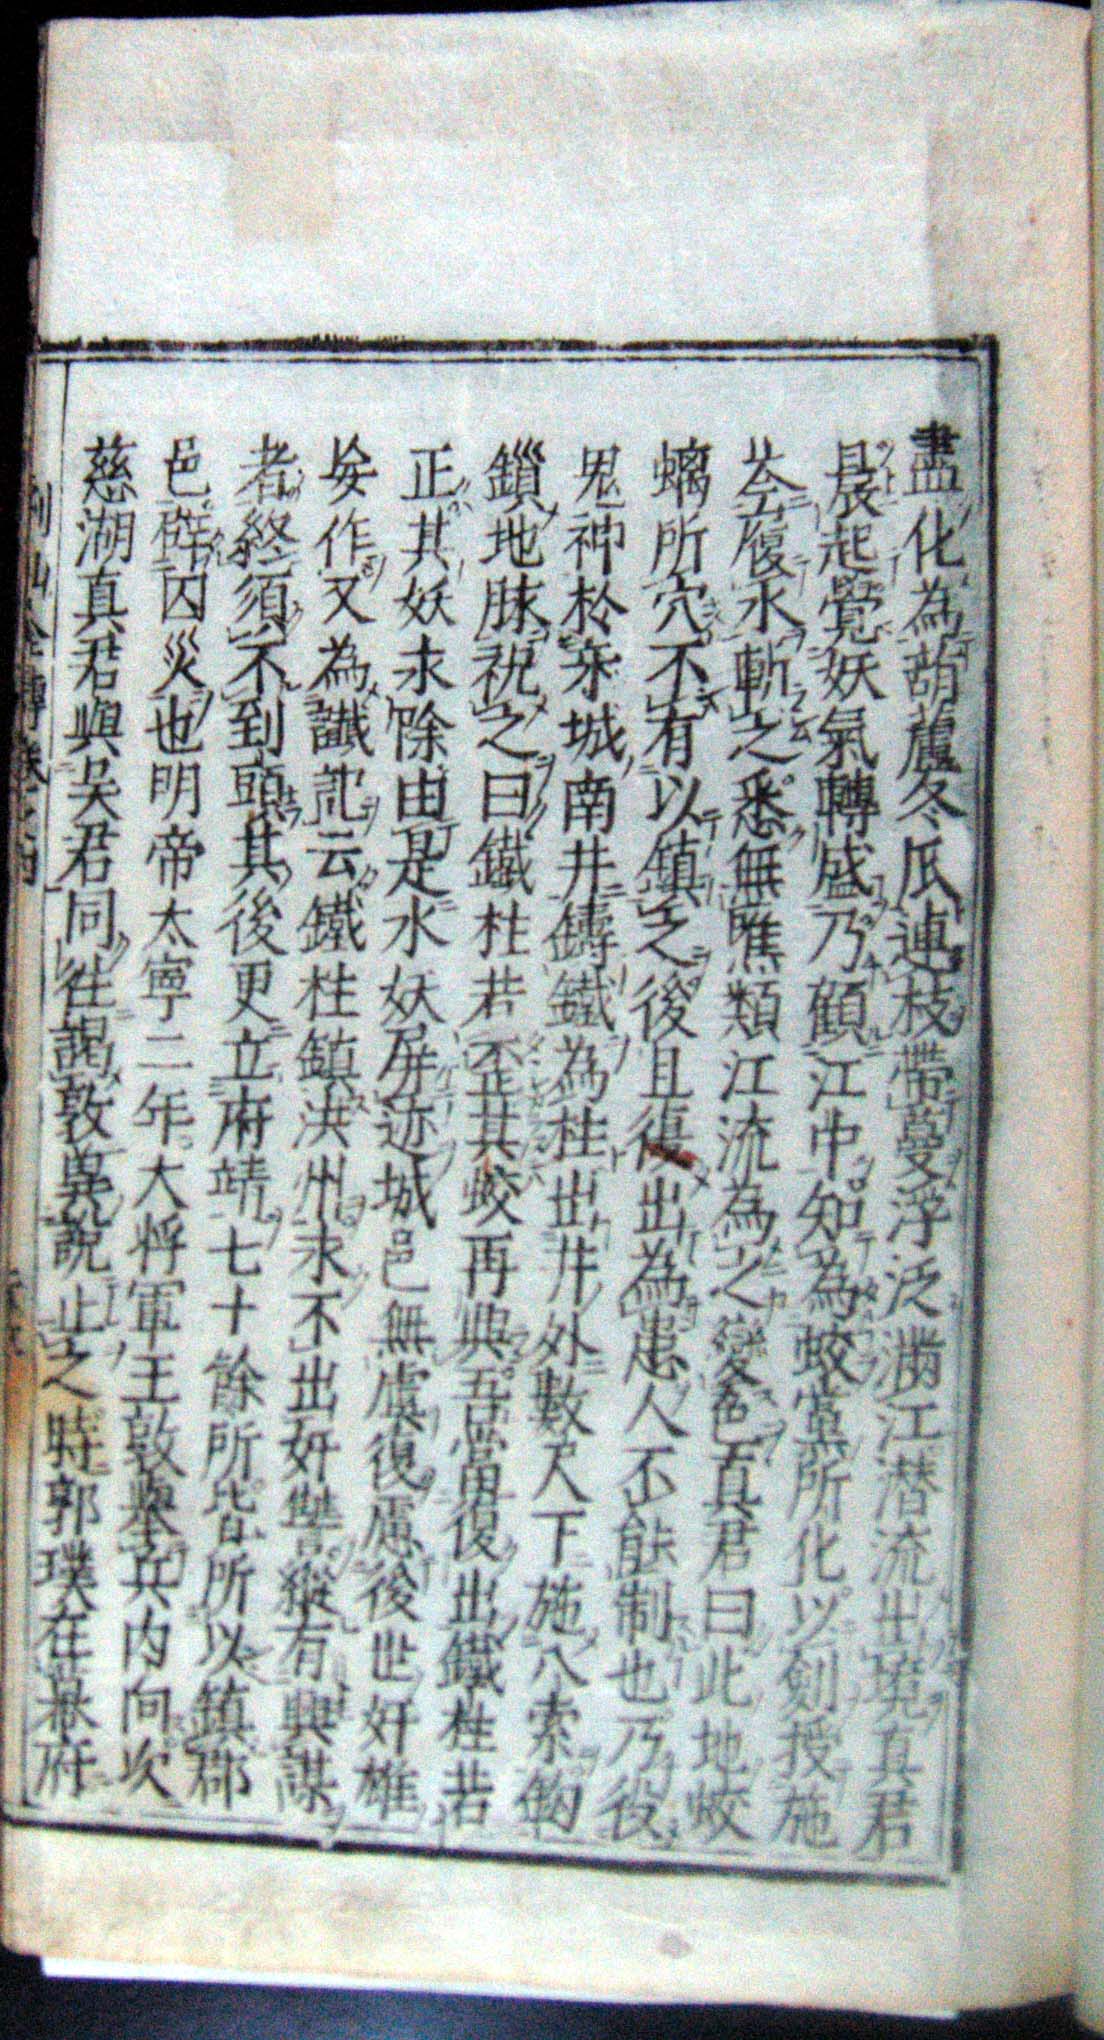 盡化為葫蘆冬瓜連枝帶蔓浮泛滿江潜流出境真君
晨起覺妖氣轉盛乃顧江中知為蛟黨所化以劍授施
岑履水斬之悉無噍類江流為之變色真君曰此地蛟
螭所穴不有以鎮之後且復出為患人不能制也乃役
鬼神於牙城南井鑄鐵為柱出井外數尺下施八索鈎
鎖地脉祝之曰鐵柱若歪其蛟再興吾當復出鐵柱若
正其妖永除由是水妖屏迹城邑無虞復慮後世奸雄
妄作又為讖記云鐵柱鎮洪州永不出奸讐縱有興謀
者終須不到頭其後更立府靖七十餘所皆所以鎮郡
邑辟囚災也明帝太寧二年大将軍王敦舉兵内向次
慈湖真君與吳君同往謁敦冀說止之時郭璞在幕府
列仙全傳卷之四